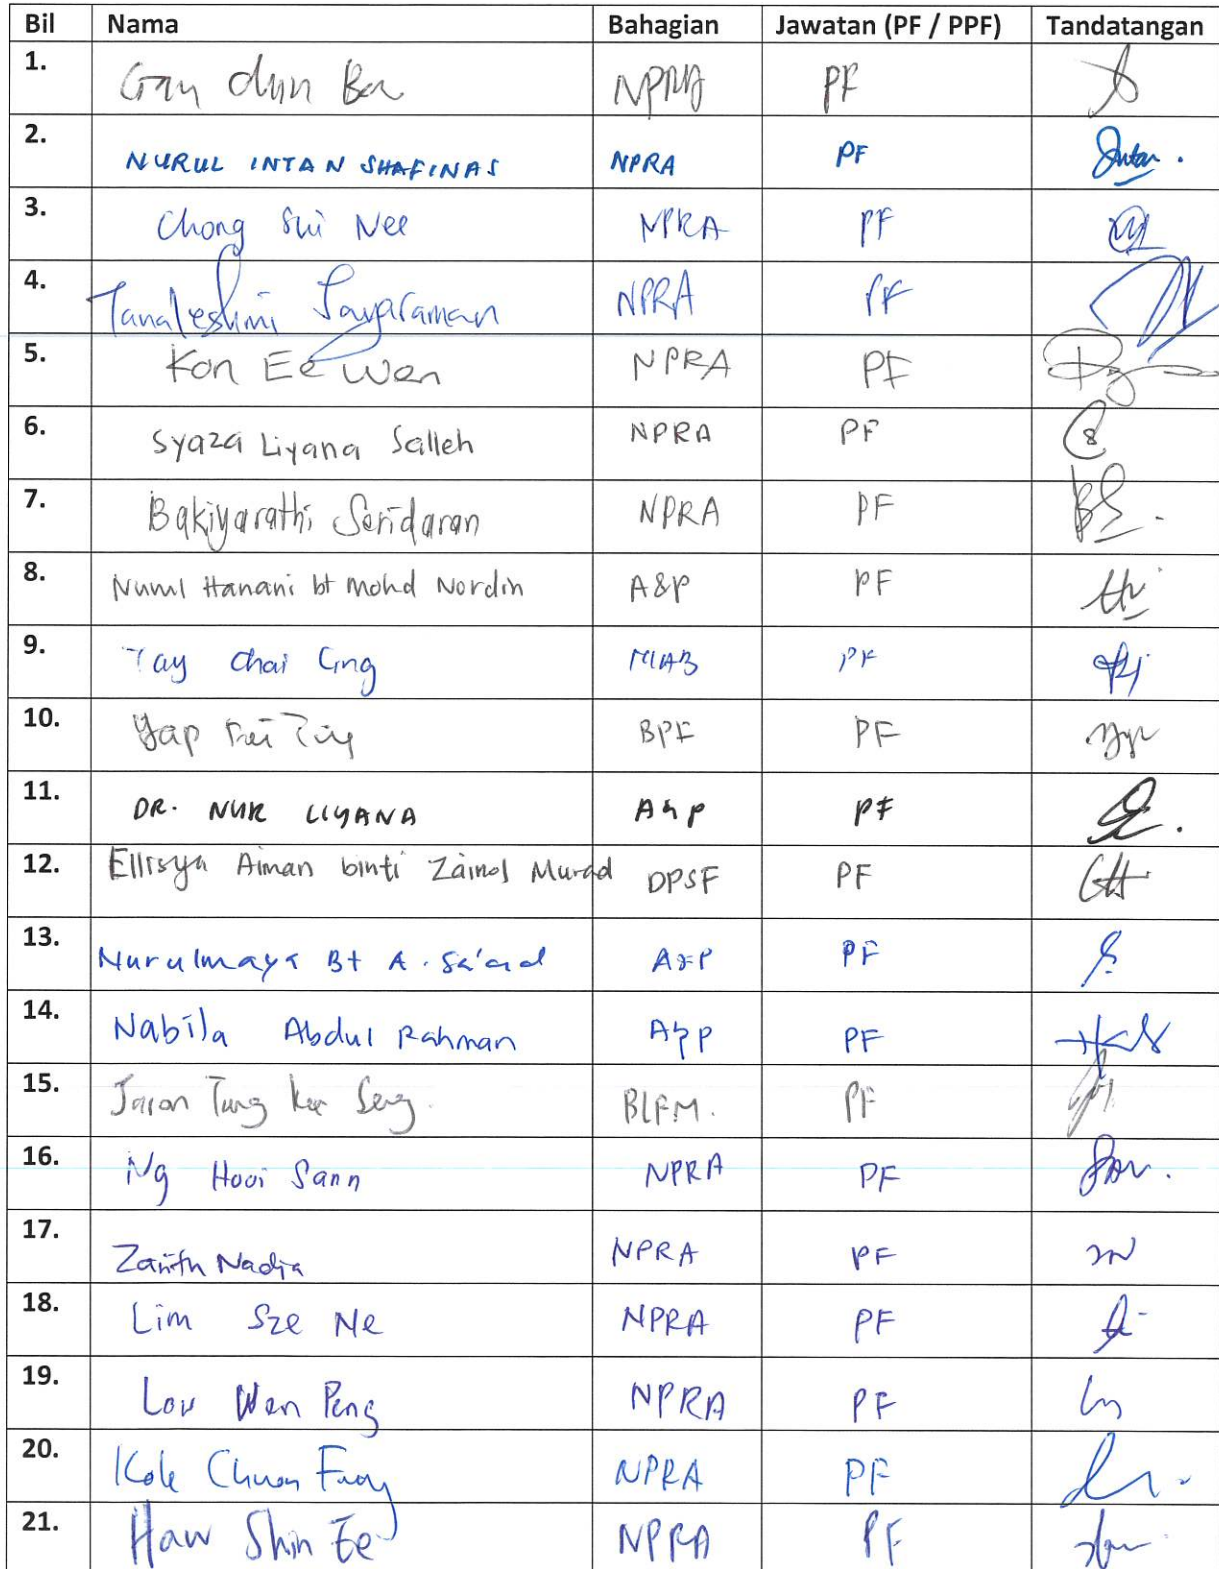 Bil Nama Bahagian Jawatan (PF / PPF) Tandatangan
1. Gan NPRA PF
2. NURUL INTAN SHAFINAS NPRA PF Intan.
3. Chong Shi Nee NPRA PF
4. Tanaleshimi Jayaraman NPRA PF
5. Kon Ee Wen NPRA PF
6. Syaza Liyana Salleh NPRA PF
7. Bakiyarathi Seridaran NPRA PF BS.
8. Nurul Hanani bt Mohd Nordin A&P PF
9. Tay Chai PF
10. Yap BPF PF
11. DR. NUR LIYANA A&P PF
12. Ellisya Aiman binti Zainol Murad DPSF PF
13. Nurulmaya Bt A. Sa'aid A&P PF
14. Nabila Abdul Rahman A&P PF
15. Jason Seng. BLFM. PF
16. Ng Hooi Sann NPRA PF
17. Nadia NPRA PF
18. Lim Sze Ne NPRA PF
19. Wen Peng NPRA PF
20. NPRA PF
21. Haw Shin Ee NPRA PF